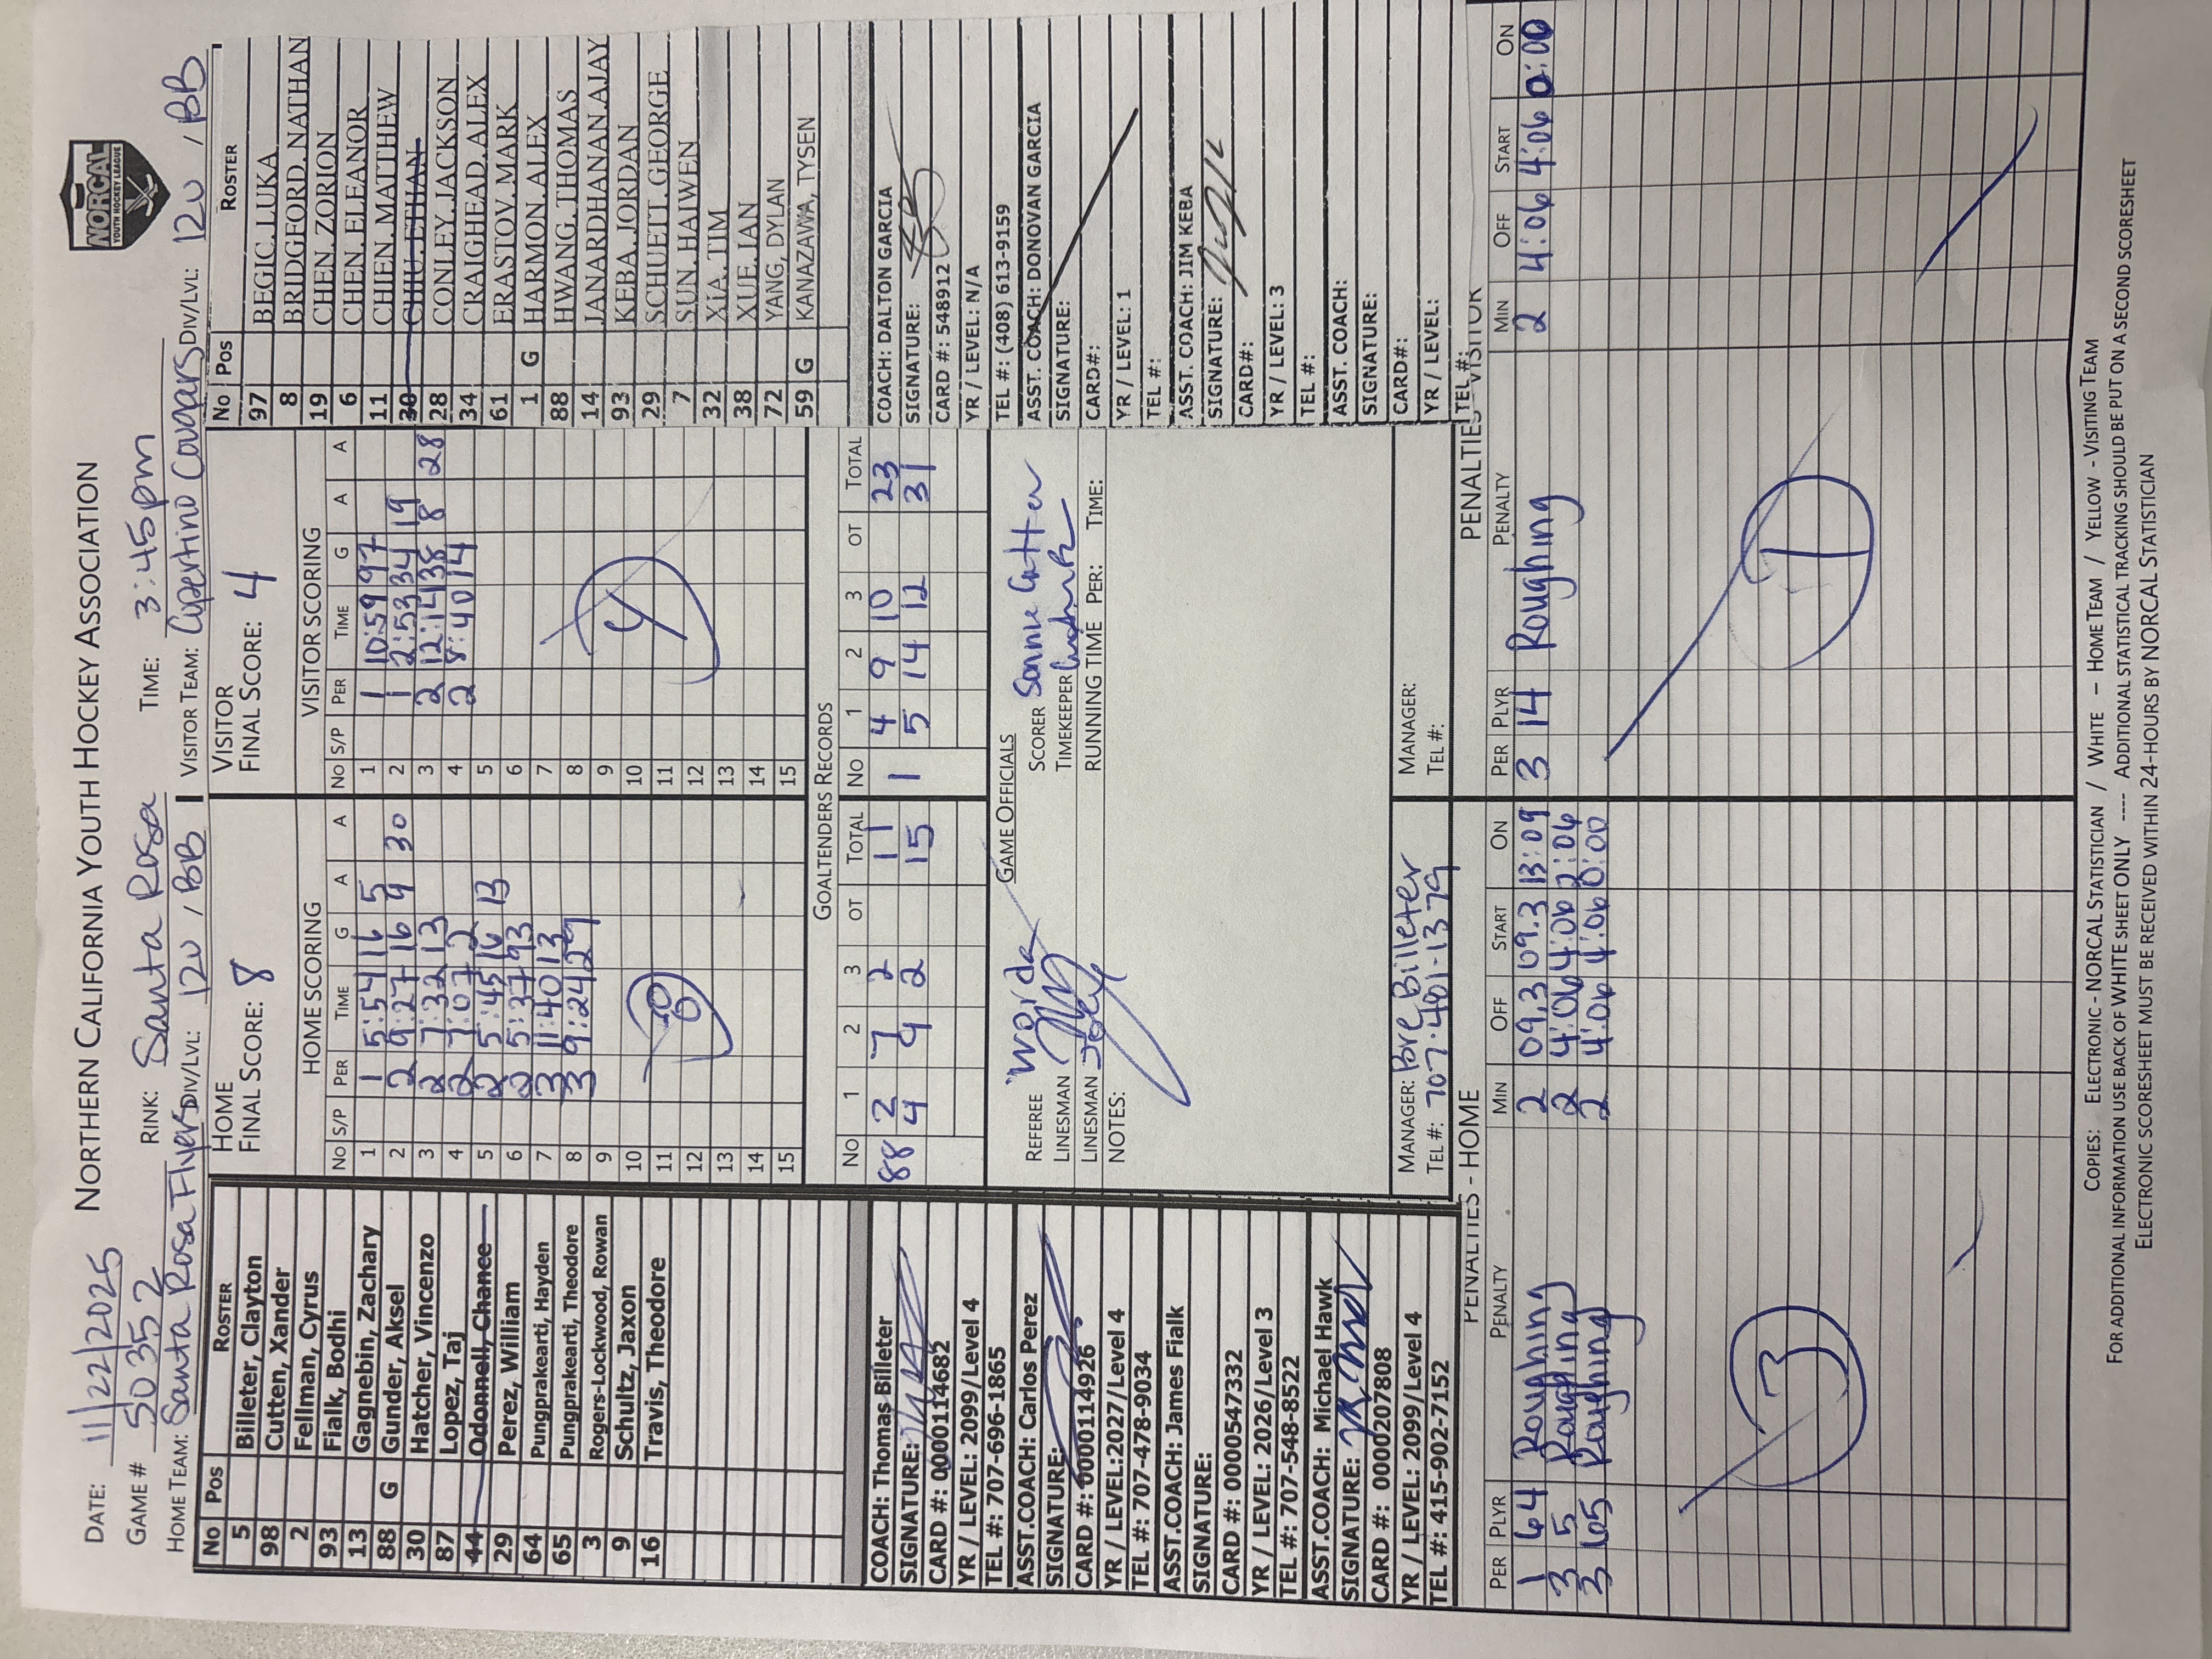 NORCAL
YOUTH HOCKEY LEAGUE
DATE: 11/22/2025 NORTHERN CALIFORNIA YOUTH HOCKEY ASSOCIATION
GAME # 50352 RINK: Santa Rosa TIME: 3:45pm
HOME TEAM: Santa Rosa Flyers DIV/LVL: 12U / BB VISITOR TEAM: Cupertino Cougars DIV/LVL: 12U / BB
No Pos ROSTER
5 Billeter, Clayton
98 Cutten, Xander
2 Fellman, Cyrus
93 Fialk, Bodhi
13 Gagnebin, Zachary
88 G Gunder, Aksel
30 Hatcher, Vincenzo
87 Lopez, Taj
44 Odonnell, Chanee
29 Perez, William
64 Pungprakearti, Hayden
65 Pungprakearti, Theodore
3 Rogers-Lockwood, Rowan
9 Schultz, Jaxon
16 Travis, Theodore
COACH: Thomas Billeter
SIGNATURE:
CARD #: 0000114682
YR / LEVEL: 2099/Level 4
TEL #: 707-696-1865
ASST.COACH: Carlos Perez
SIGNATURE:
CARD #: 0000114926
YR / LEVEL:2027/Level 4
TEL #: 707-478-9034
ASST.COACH: James Fialk
SIGNATURE:
CARD #: 0000547332
YR / LEVEL: 2026/Level 3
TEL #: 707-548-8522
ASST.COACH: Michael Hawk
SIGNATURE:
CARD #: 0000207808
YR / LEVEL: 2099/Level 4
TEL #: 415-902-7152
HOME
FINAL SCORE: 8
HOME SCORING
No S/P PER TIME G A A
1 1 5:54 16 5
2 2 9:27 16 9 30
3 2 7:32 13
4 2 7:07 2
5 2 5:45 16 13
6 2 5:37 93
7 3 11:40 13
8 3 9:24 29
9
10
11
12
13
14
15
8
VISITOR
FINAL SCORE: 4
VISITOR SCORING
No S/P PER TIME G A A
1 1 10:59 97
2 1 2:53 34 19
3 2 12:14 38 8 28
4 2 8:40 14
5
6
7
8
9
10
11
12
13
14
15
4
GOALTENDERS RECORDS
No 1 2 3 OT TOTAL No 1 2 3 OT TOTAL
88 2 7 2 11 1 4 9 10 23
4 9 2 15 5 14 12 31
GAME OFFICIALS
REFEREE Worda SCORER
LINESMAN TIMEKEEPER
LINESMAN Joey RUNNING TIME PER: TIME:
NOTES:
MANAGER: Bre Billeter MANAGER:
TEL #: 707-481-1379 TEL #:
No Pos ROSTER
97 BEGIC, LUKA
8 BRIDGFORD, NATHAN
19 CHEN, ZORION
6 CHEN, ELEANOR
11 CHIEN, MATTHEW
30 CHIU, ETHAN
28 CONLEY, JACKSON
34 CRAIGHEAD, ALEX
61 ERASTOV, MARK
1 G HARMON, ALEX
88 HWANG, THOMAS
14 JANARDHANAN, AJAY
93 KEBA, JORDAN
29 SCHUETT, GEORGE
7 SUN, HAIWEN
32 XIA, TIM
38 XUE, IAN
72 YANG, DYLAN
59 G KANAZAWA, TYSEN
COACH: DALTON GARCIA
SIGNATURE:
CARD #: 548912
YR / LEVEL: N/A
TEL #: (408) 613-9159
ASST. COACH: DONOVAN GARCIA
SIGNATURE:
CARD#:
YR / LEVEL: 1
TEL #:
ASST. COACH: JIM KEBA
SIGNATURE:
CARD#:
YR / LEVEL: 3
TEL #:
ASST. COACH:
SIGNATURE:
CARD#:
YR / LEVEL:
TEL #:
PENALTIES - HOME
PER PLYR PENALTY MIN OFF START ON
1 64 Roughing 2 09.3 09.3 13:09
3 5 Roughing 2 4:06 4:06 2:06
3 65 Roughing 2 4:06 4:06 0:00
3
PENALTIES - VISITOR
PER PLYR PENALTY MIN OFF START ON
3 14 Roughing 2 4:06 4:06 0:00
1
COPIES: ELECTRONIC - NORCAL STATISTICIAN / WHITE – HOME TEAM / YELLOW - VISITING TEAM
FOR ADDITIONAL INFORMATION USE BACK OF WHITE SHEET ONLY ---- ADDITIONAL STATISTICAL TRACKING SHOULD BE PUT ON A SECOND SCORESHEET
ELECTRONIC SCORESHEET MUST BE RECEIVED WITHIN 24-HOURS BY NORCAL STATISTICIAN